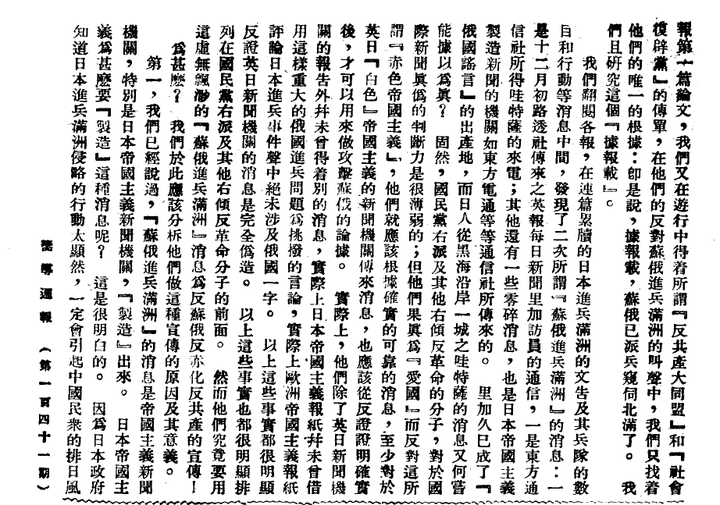 報第一篇論文，我們又在遊行中得着所謂『反共產大同盟』和『社會
復辟黨』的傳單，在他們的反對蘇俄進兵滿洲的叫聲中，我們只找着
他們的唯一的根據：卽是說，據報載，蘇俄已派兵窺伺北滿了。　我
們且研究這個『據報載』。
我們翻閱各報，在連篇累牘的日本進兵滿洲的文告及其兵隊的數
目和行動等消息中間，發現了二次所謂『蘇俄進兵滿洲』的消息：一
是十二月初路透社傳來之英報每日新聞里加訪員的通信，一是東方通
信社所得哇特薩的來電；其他還有一些零碎消息，也是日本帝國主義
製造新聞的機關如東方電通等等通信社所傳來的。　里加久已成了『
俄國謠言』的出產地，而日人從黑海沿岸一城之哇特薩的消息又何嘗
能據以爲眞？　固然，國民黨右派及其他右傾反革命的分子，對於國
際新聞眞僞的判斷力是很薄弱的；但他們果眞爲『愛國』而反對這所
謂『赤色帝國主義』，他們就應該根據確實的可靠的消息，至少對於
英日『白色』帝國主義的新聞機關傳來消息，也應該從反證證明確實
後，才可以用來做攻擊蘇俄的論據。　實際上，他們除了英日新聞機
關的報告外幷未曾得着別的消息，實際上日本帝國主義報紙幷未曾借
用這樣重大的俄國進兵問題爲挑撥的言論，實際上歐洲帝國主義報紙
評論日本進兵事件聲中絕未涉及俄國一字。　以上這些事實都很明顯
反證英日新聞機關的消息是完全僞造。　以上這些事實也都很明顯排
列在國民黨右派及其他右傾反革命分子的前面。　然而他們究竟要用
這虛無飄渺的『蘇俄進兵滿洲』消息爲反蘇俄反赤化反共產的宣傳！
爲甚麼？　我們於此應該分析他們做這種宣傳的原因及其意義。
第一，我們已經說過，『蘇俄進兵滿洲』的消息是帝國主義新聞
機關，特別是日本帝國主義新聞機關，『製造』出來。　日本帝國主
義爲甚麼要『製造』這種消息呢？　這是很明白的。　因爲日本政府
知道日本進兵滿洲侵略的行動太顯然，一定會引起中國民衆的排日風
嚮導週報　（第一百四十一期）